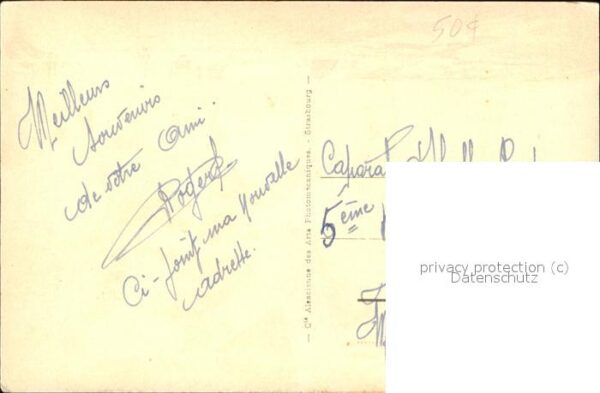 50¢
Meilleurs
souvenirs
de votre ami.
Roger
Ci-joint ma nouvelle
adresse.
— Cie Alsacienne des Arts Photomécaniques. - Strasbourg —
Caporal
5ème
privacy protection (c)
Datenschutz